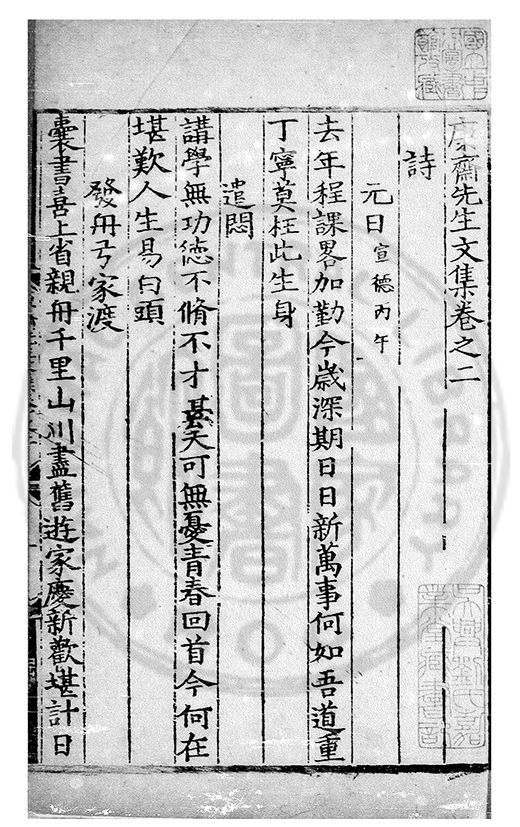 康齋先生文集卷之二
詩
元日宣德丙午
去年程課畧加勤今歲深期日日新萬事何如吾道重
丁寧莫枉此生身
遣悶
講學無功德不脩不才甚矣可無憂青春回首今何在
堪歎人生易白頭
發舟弓家渡
囊書喜上省親舟千里山川盡舊遊家慶新歡堪計日